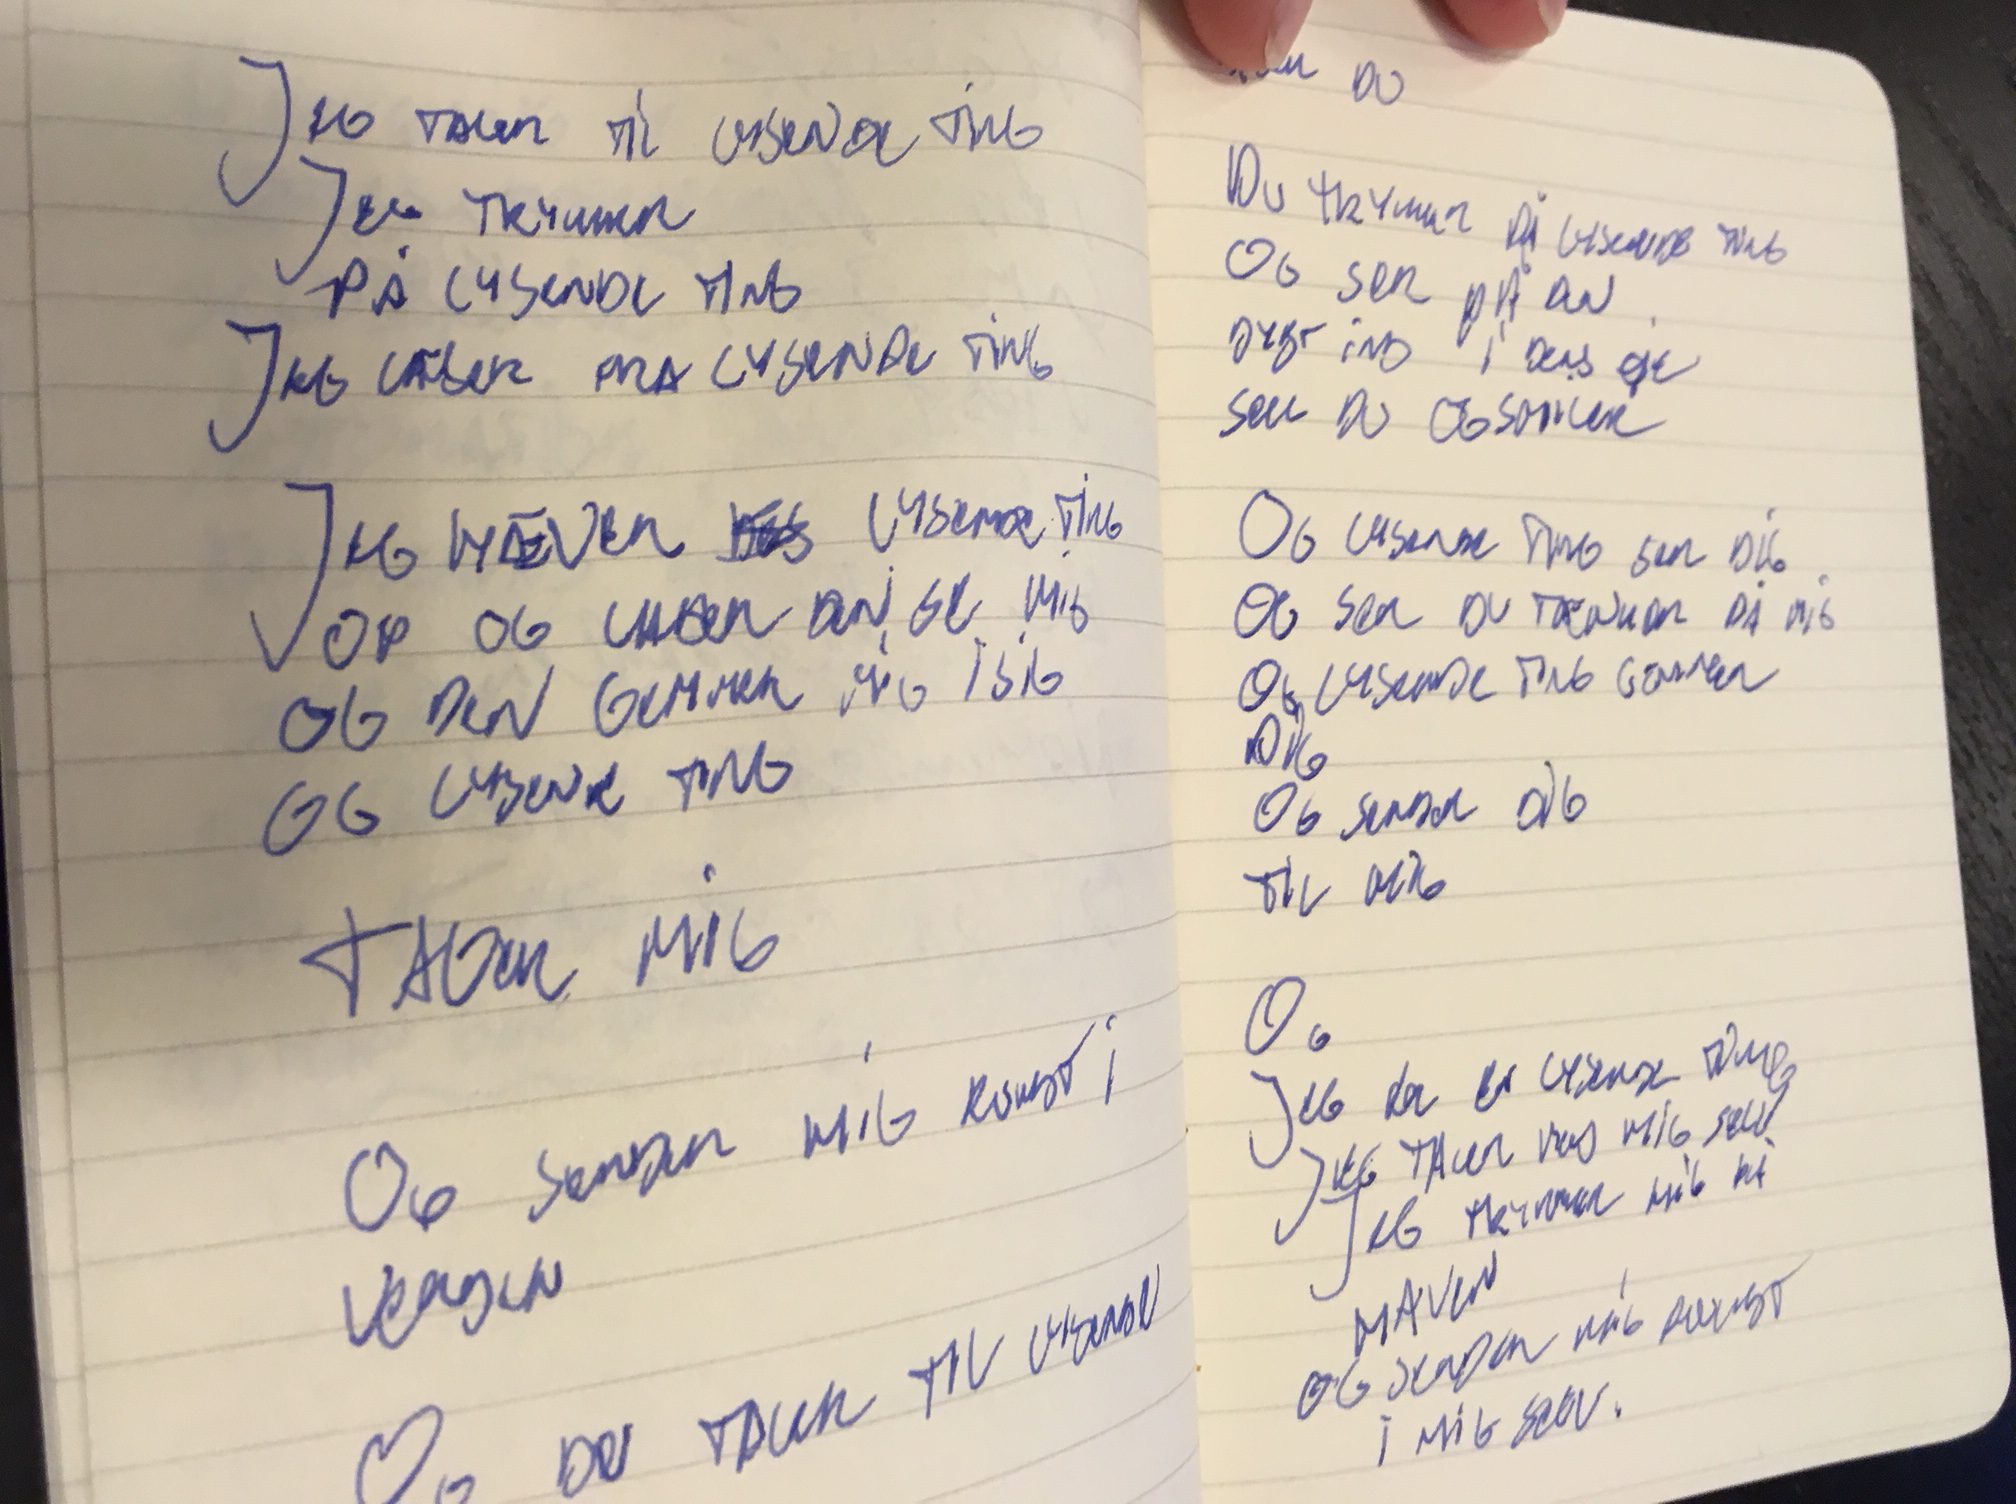 JEG TALER TIL LYSENDE TING
JEG TRYKKER
PÅ LYSENDE TING
JEG LÆSER FRA LYSENDE TING
JEG HÆVER LYSENDE TING
OP OG LADER DEN SE MIG
OG DEN GEMMER MIG I SIG
OG LYSENDE TING
TAGER MIG
OG SENDER MIG RUNDT I
VERDEN
OG DU TALER TIL LYSENDE
DU
DU TRYKKER PÅ LYSENDE TING
OG SER PÅ DEN
DYBT IND I DENS ØJE
SER DU OG SMILER
OG LYSENDE TING SER DIG
OG SER DU TÆNKER PÅ MIG
OG LYSENDE TING GEMMER
DIG
OG SENDER DIG
TIL MIG
OG
JEG ER EN LYSENDE TING
JEG TALER MIG SELV
JEG TRYKKER MIG PÅ
MAVEN
OG SENDER MIG RUNDT
I MIG SELV.